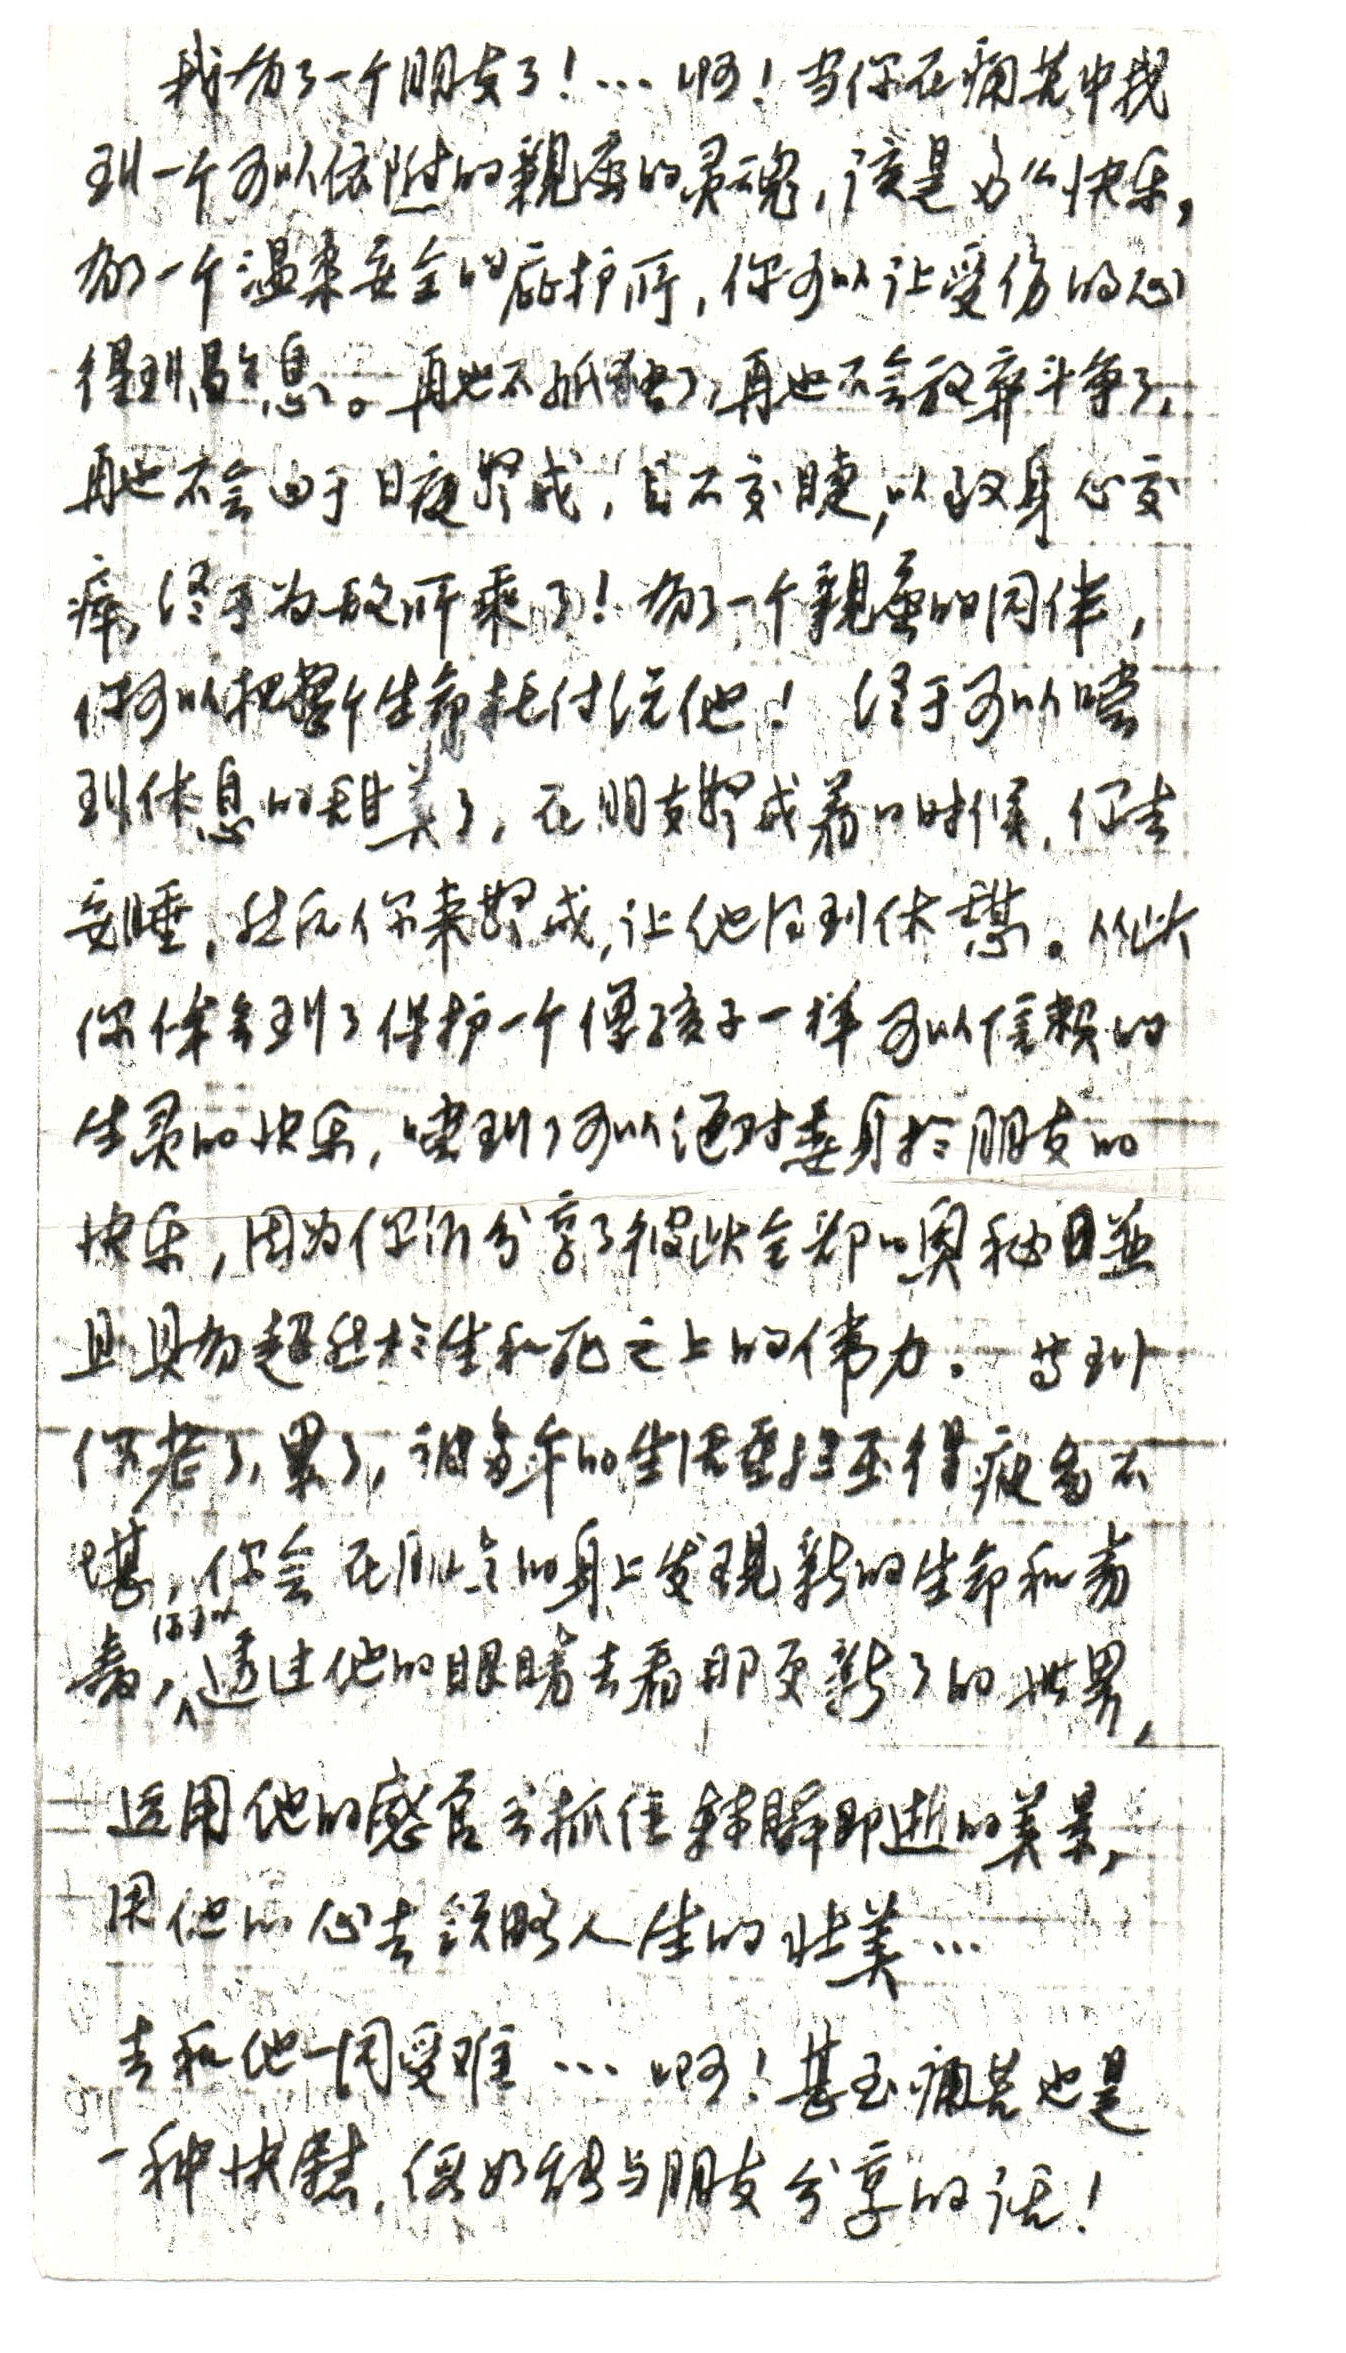 我有了一个朋友了！…啊！当你在痛苦中找
到一个可以依附的親密的灵魂，该是多么快乐，
有了一个温柔安全的庇护所，你可以让受伤的心
得到易息。再也不孤独了，再也不会放弃斗争了，
再也不会由于日夜警戒，目不交睫，以致身心交
瘁，终于为敌所乘了！有了一个親密的同伴，
你可以把整个生命托付给他！终于可以嚐
到休息的甜美了，在朋友警戒着的时候，你去
安睡，然后你来警戒，让他得到休憩。从此
你体会到了保护一个像孩子一样可以信赖的
生灵的快乐，嚐到了可以绝对委身於朋友的
快乐，因为你们分享了彼此全部的奥秘
且具有超然於生和死之上的伟力。等到
你老了，累了，被多年的生活重担压得疲惫不
堪，你会在朋友的身上发现新的生命和青
春，你可以透过他的眼睛去看那更新了的世界，
运用他的感官去抓住转瞬即逝的美景，
用他的心去领略人生的壮美…
去和他一同受难…啊！甚至痛苦也是
一种快慰，假如能与朋友分享的话！